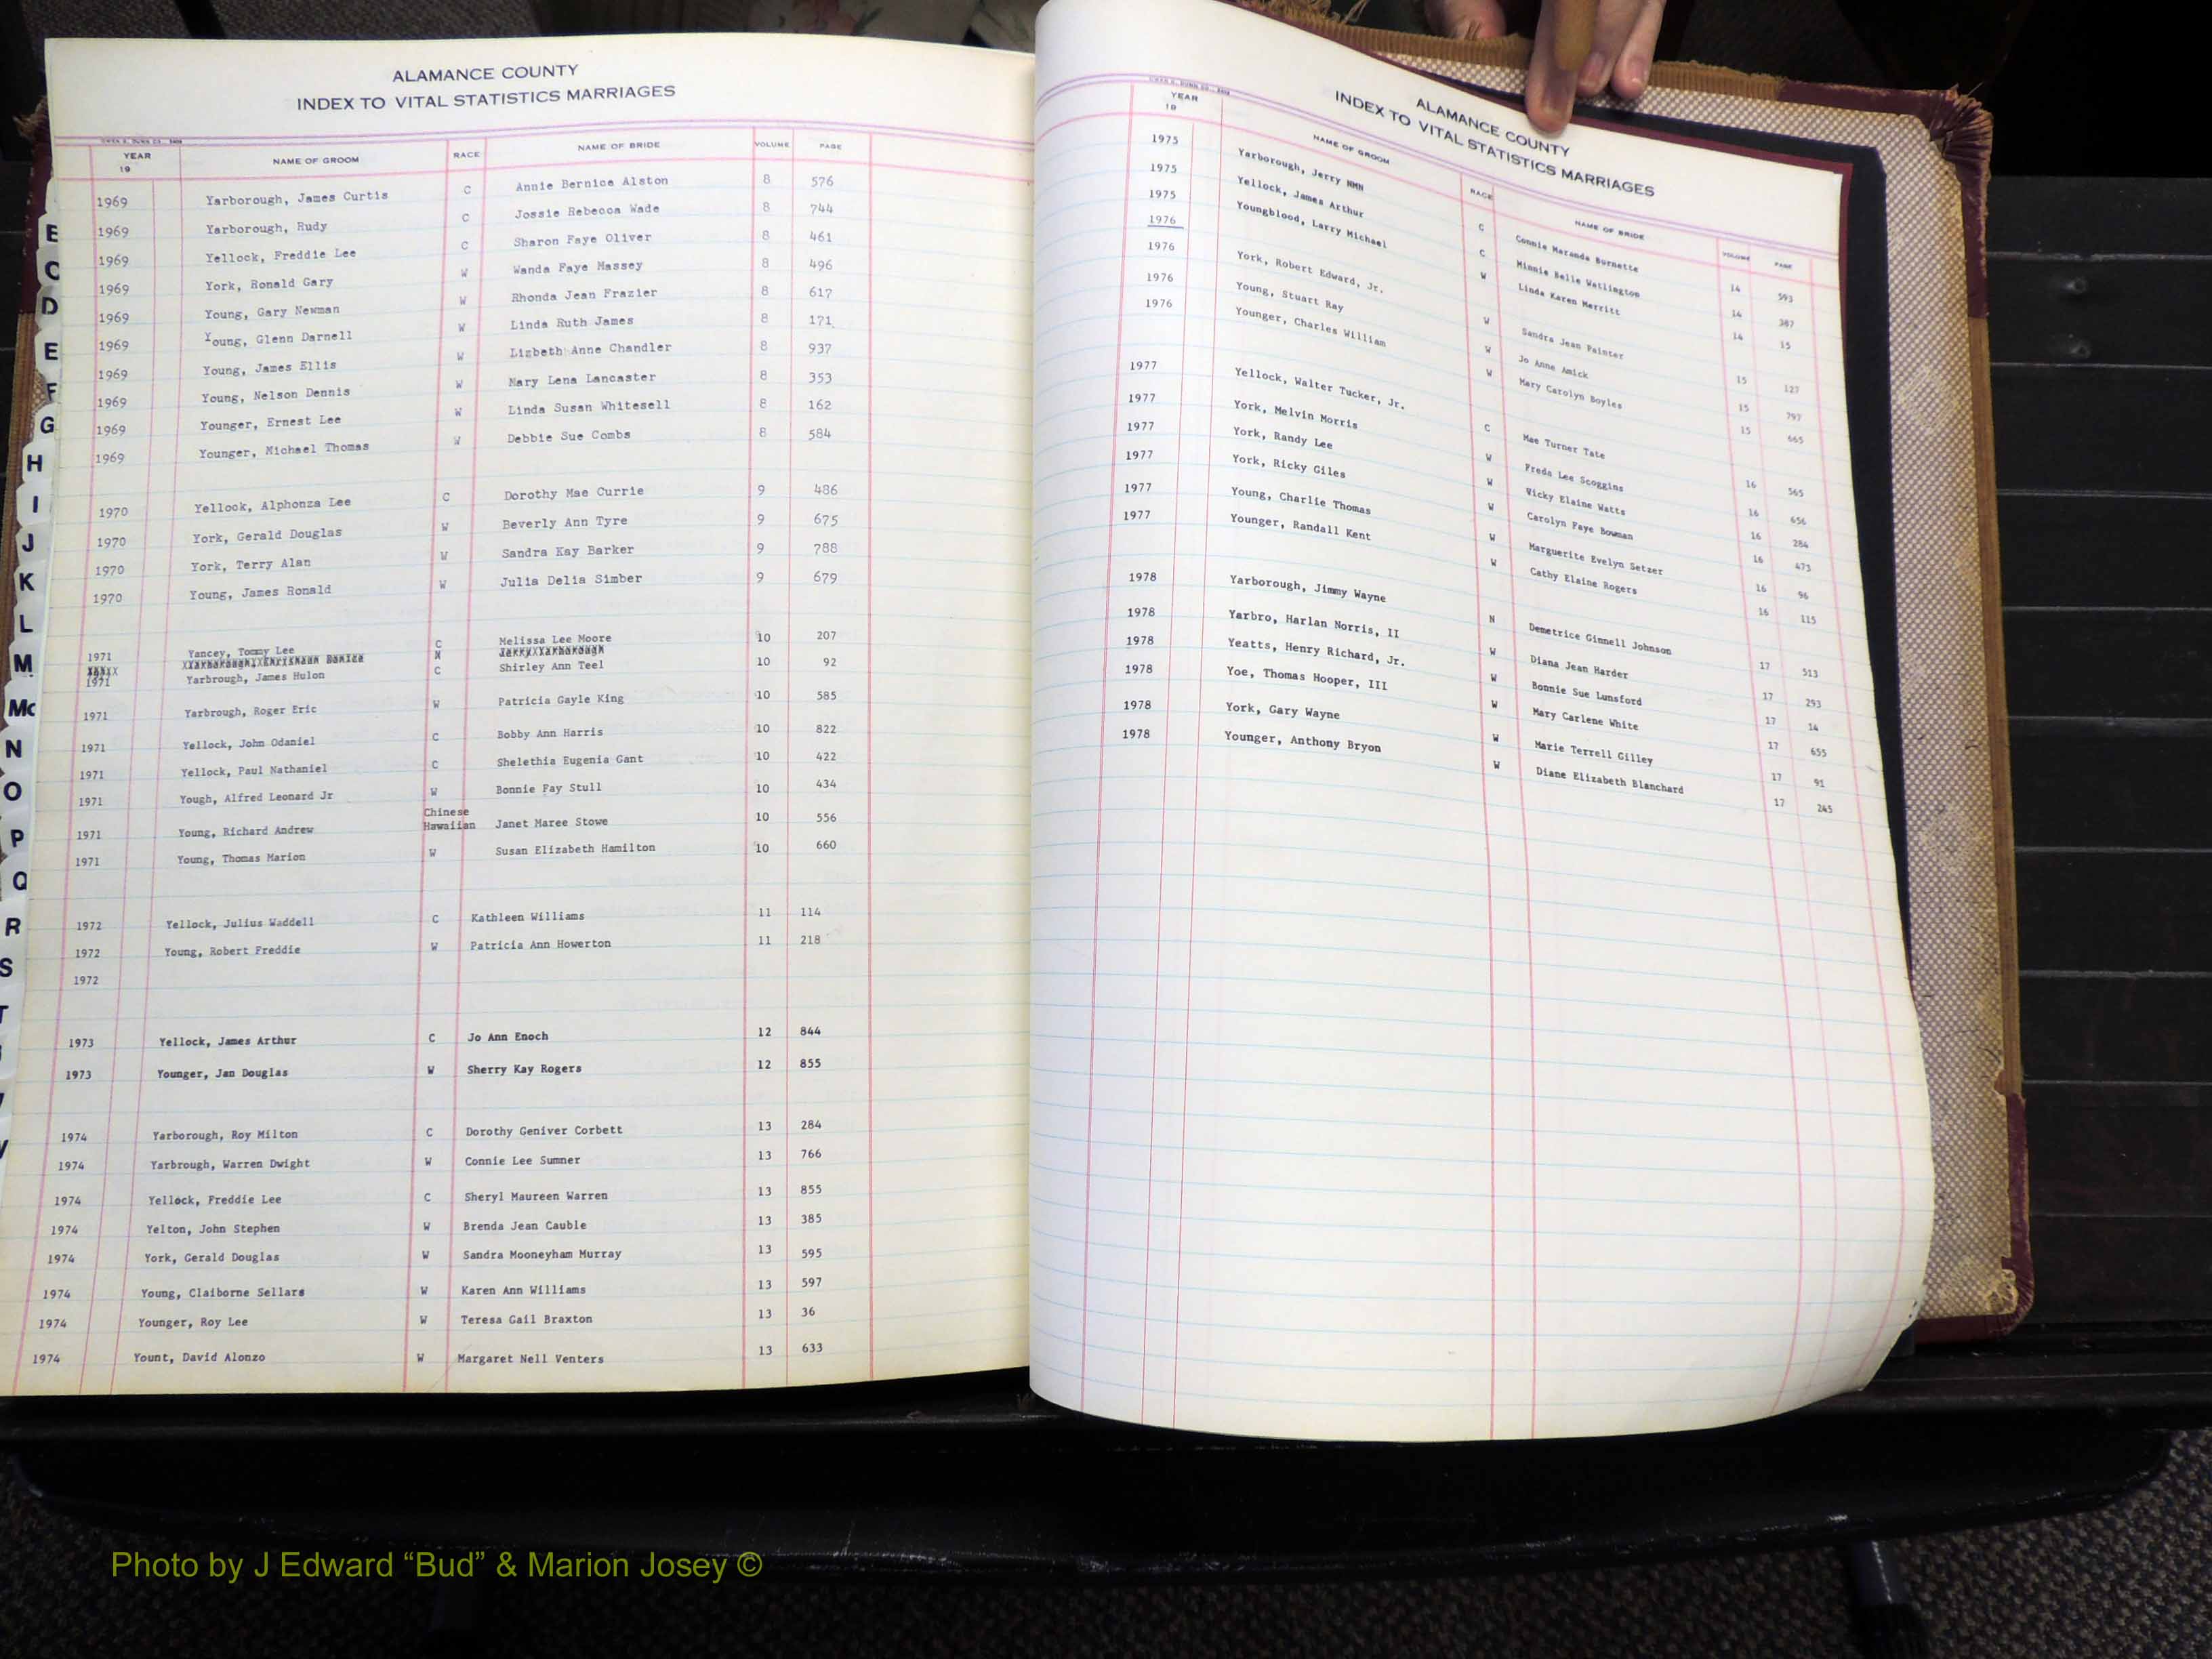 ALAMANCE COUNTY
INDEX TO VITAL STATISTICS MARRIAGES
OWEN G. DUNN CO.
YEAR 19 NAME OF GROOM RACE NAME OF BRIDE VOLUME PAGE
1969 Yarborough, James Curtis C Annie Bernice Alston 8 576
1969 Yarborough, Rudy C Jossie Rebecca Wade 8 744
1969 Yellock, Freddie Lee C Sharon Faye Oliver 8 461
1969 York, Ronald Gary W Wanda Faye Massey 8 496
1969 Young, Gary Newman W Rhonda Jean Frazier 8 617
1969 Young, Glenn Darnell W Linda Ruth James 8 171
1969 Young, James Ellis W Lizbeth Anne Chandler 8 937
1969 Young, Nelson Dennis W Mary Lena Lancaster 8 353
1969 Younger, Ernest Lee W Linda Susan Whitesell 8 162
1969 Younger, Michael Thomas W Debbie Sue Combs 8 584
1970 Yellock, Alphonza Lee C Dorothy Mae Currie 9 486
1970 York, Gerald Douglas W Beverly Ann Tyre 9 675
1970 York, Terry Alan W Sandra Kay Barker 9 788
1970 Young, James Ronald W Julia Delia Simber 9 679
1971 Yancey, Tommy Lee C Melissa Lee Moore 10 207
1971 Yarbrough, James Hulon C Shirley Ann Teel 10 92
1971 Yarbrough, Roger Eric W Patricia Gayle King 10 585
1971 Yellock, John Odaniel C Bobby Ann Harris 10 822
1971 Yellock, Paul Nathaniel C Shelethia Eugenia Gant 10 422
1971 Yough, Alfred Leonard Jr W Bonnie Fay Stull 10 434
1971 Young, Richard Andrew Chinese Hawaiian Janet Maree Stowe 10 556
1971 Young, Thomas Marion W Susan Elizabeth Hamilton 10 660
1972 Yellock, Julius Waddell C Kathleen Williams 11 114
1972 Young, Robert Freddie W Patricia Ann Howerton 11 218
1972
1973 Yellock, James Arthur C Jo Ann Enoch 12 844
1973 Younger, Jan Douglas W Sherry Kay Rogers 12 855
1974 Yarborough, Roy Milton C Dorothy Geniver Corbett 13 284
1974 Yarbrough, Warren Dwight W Connie Lee Sumner 13 766
1974 Yellock, Freddie Lee C Sheryl Maureen Warren 13 855
1974 Yelton, John Stephen W Brenda Jean Cauble 13 385
1974 York, Gerald Douglas W Sandra Mooneyham Murray 13 595
1974 Young, Claiborne Sellars W Karen Ann Williams 13 597
1974 Younger, Roy Lee W Teresa Gail Braxton 13 36
1974 Yount, David Alonzo W Margaret Nell Venters 13 633
B
C
D
E
F
G
H
I
J
K
L
M
Mc
N
O
P
Q
R
S
T
ALAMANCE COUNTY
INDEX TO VITAL STATISTICS MARRIAGES
YEAR 19 NAME OF GROOM RACE NAME OF BRIDE VOLUME PAGE
1975 Yarborough, Jerry NMN C Connie Maranda Burnette 14 593
1975 Yellock, James Arthur C Minnie Belle Watlington 14 387
1975 Youngblood, Larry Michael W Linda Karen Merritt 14 15
1976
1976 York, Robert Edward, Jr. W Sandra Jean Painter 15 127
1976 Young, Stuart Ray W Jo Anne Amick 15 797
1976 Younger, Charles William W Mary Carolyn Boyles 15 665
1977 Yellock, Walter Tucker, Jr. C Mae Turner Tate 16 565
1977 York, Melvin Morris W Freda Lee Scoggins 16 656
1977 York, Randy Lee W Vicky Elaine Watts 16 284
1977 York, Ricky Giles W Carolyn Faye Bowman 16 473
1977 Young, Charlie Thomas W Marguerite Evelyn Setzer 16 96
1977 Younger, Randall Kent W Cathy Elaine Rogers 16 115
1978 Yarborough, Jimmy Wayne N Demetrice Ginnell Johnson 17 513
1978 Yarbro, Harlan Norris, II W Diana Jean Harder 17 293
1978 Yeatts, Henry Richard, Jr. W Bonnie Sue Lunsford 17 14
1978 Yoe, Thomas Hooper, III W Mary Carlene White 17 655
1978 York, Gary Wayne W Marie Terrell Gilley 17 91
1978 Younger, Anthony Bryon W Diane Elizabeth Blanchard 17 245
Photo by J Edward “Bud” & Marion Josey ©